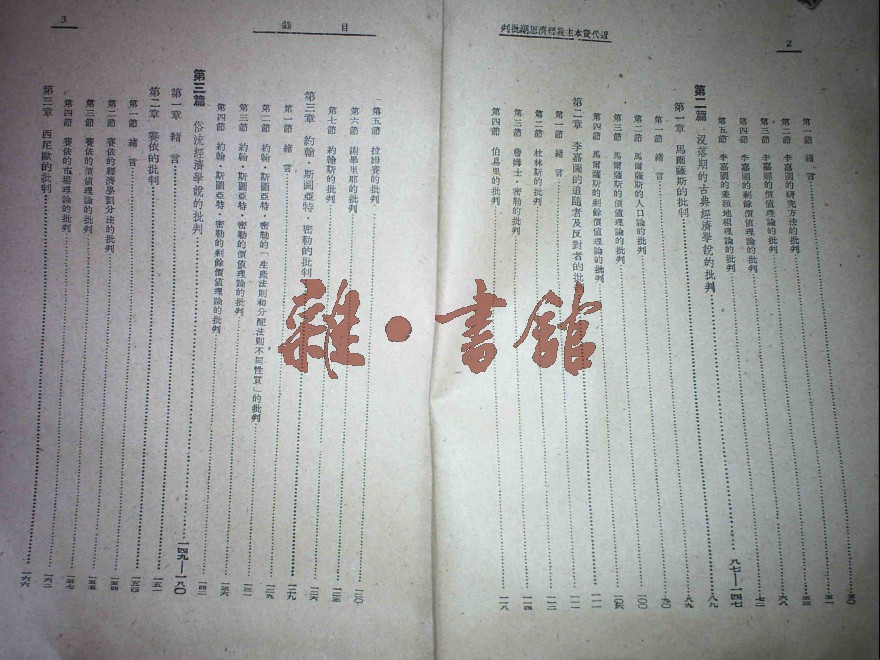 近代資本主義經濟思潮批判
2
第一節 緒言
第二節 李嘉圖的研究方法的批判 六八
第三節 李嘉圖的價值理論的批判 七二
第四節 李嘉圖的剩餘價值理論的批判
第五節 李嘉圖的差額地租理論的批判
第二篇 沒落期的古典經濟學說的批判 八七—一四七
第一章 馬爾薩斯的批判 八九
第一節 緒言 八九
第二節 馬爾薩斯的人口論的批判 九〇
第三節 馬爾薩斯的價值理論的批判 一〇〇
第四節 馬爾薩斯的剩餘價值理論的批判 一〇六
第二章 李嘉圖的追隨者及反對者的批判 一一一
第一節 緒言 一一一
第二節 杜林斯的批判 一一二
第三節 詹姆士·密勒的批判 一一四
第四節 伯易里的批判 一一八
目錄
3
第五節 拉姆賽的批判 一二〇
第六節 謝爾里耶的批判
第七節 約翰斯的批判
第三章 約翰·斯圖亞特·密勒的批判 一二六
第一節 緒言 一二九
第二節 約翰·斯圖亞特·密勒的「生產法則和分配法則不同性質」的批判 一二九
第三節 約翰·斯圖亞特·密勒的價值理論的批判 一三一
第四節 約翰·斯圖亞特·密勒的剩餘價值理論的批判 一三六
第三篇 俗流經濟學說的批判 一四九—一八〇
第一章 緒言 一五一
第二章 賽依的批判 一五四
第一節 緒言 一五四
第二節 賽依的經濟學劃分法的批判
第三節 賽依的價值理論的批判 一五五
第四節 賽依的市場理論的批判 一五七
第三章 西尼歐的批判 一六二
一六六
雜·書館